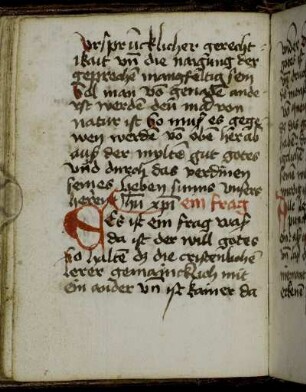 vrsprücklicher gerecht
ikait vn̄ die naigung der
geprechen mangfeltig sein
Sol man vō genade ande
rst werden den̄ mā von
natur ist So muß es gege
ben werden vō oben herab
auß der mylten gut gotes
vnd durch das verdinen
seines lieben suns vnsers
herren Jhu xp̄i ein frag
Es ist ein frag waß
da ist der will gotes
So halten dz die cristenlichen
lerer gemaincklich mit
ein ander vn̄ ist kainer da